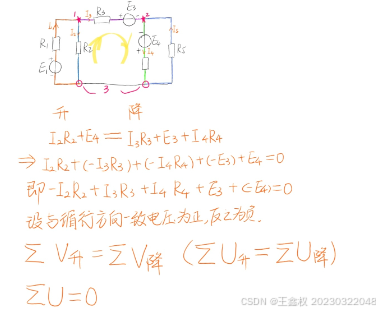 I₁ I₃ R₃ E₃
1 2
R₁ I₂ R₂ E₄ I₅ R₅
E₁ I₄
3
升 降
I₂R₂+E₄=I₃R₃+E₃+I₄R₄
⇒ I₂R₂+(-I₃R₃)+(-I₄R₄)+(-E₃)+E₄=0
即-I₂R₂+I₃R₃+I₄R₄+E₃+(-E₄)=0
设与循行方向一致电压为正,反之为负.
∑V升=∑V降 (∑U升=∑U降)
∑U=0
CSDN @王鑫权 20230322048